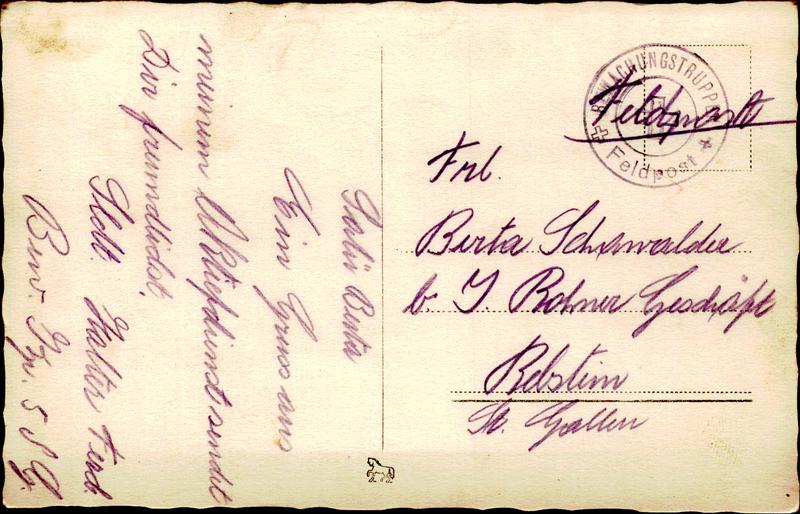 Salü Berta
Ein Gruss aus
meinem Aktivdienst sendet
Dir freundlichst.
Sdt. Walter Ferd.
Bew. Kp. 5 S G.
BEWACHUNGSTRUPPE
Feldpost
Feldpost
Frl.
Berta Schawalder
b. J. Rohner Geschäft
Rebstein
St. Gallen